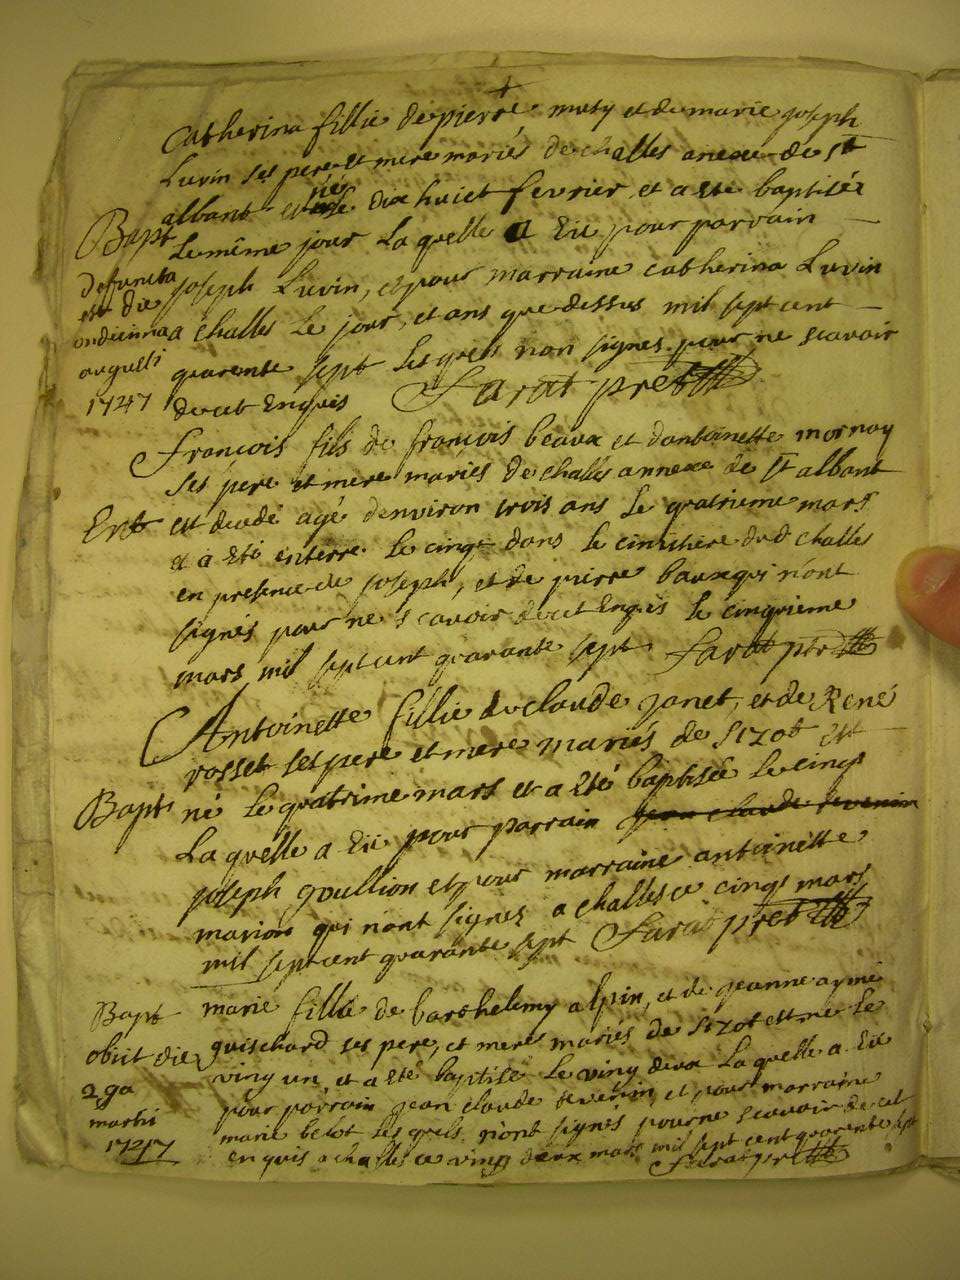 +
Catherina fillie de pierre muty et de marie joseph
Luvin ses pere et mere mariés de challes anexe de St
albant est née dix huict fevrier et a ete baptisée
Bapt
Le même jour La quelle a Eü pour parrain
defuncta est die undecima augusti 1747
joseph Luvin, et pour marraine catherina Luvin
a challes Le jour, et ans que dessus mil sept cent
quarente sept Lesquels non signes pour ne scavoir
de cet Enquis Sarat pret
François fils de françois beaux et dantoinette mornay
Ses pere et mere mariés de challes annexe de St albant
Ent
est decedé agé denviron trois ans Le quatrieme mars
et a Eté enterre Le cinqe dans Le cimitiere dud challes
en presence de joseph, et de pierre baux qui n'ont
signés pour ne scavoir de cet Enqis Le cinquieme
mars mil sept cent quarante sept Sarat ptr
Antoinette fillie de claude janet, et de René
rosset ses pere et mere mariés de Sizot est
Bapt
né Le quatrime mars et a Eté baptisée Le cinqe
La quelle a Eü pour parrain jean claude tevenin
joseph goullion et pour marraine antoinette
marion qui nont signes a challes ce cinqe mars
mil sept cent quarante sept Sarat pret
Bapt
marie fillie de barthelemy alpin, et de jeanne aymé
obiit die 2ga martii 1747
guichard ses pere, et mere mariés de Sizot est né Le
ving un, et a ete baptise Le ving deux La quelle a Eü
pour parrain jean claude tevenin, et pour marraine
marie belot Les quels n'ont signés pour ne scavoir de cet
enquis a challes ce ving deux mars mil sept cent quarente sept
Sarat pret